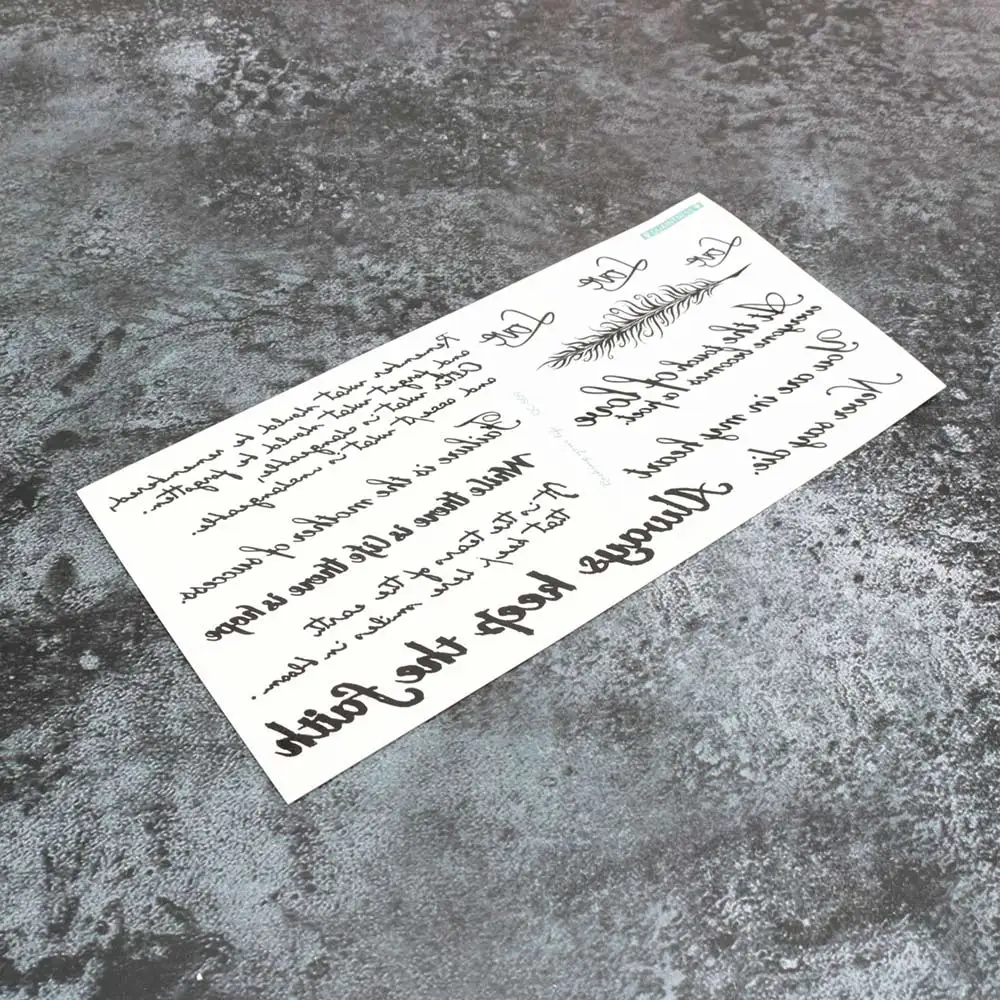 Love
Love
Love
At the touch of love
anyone becomes a poet.
You are in my heart
Never say die.
Remember what should be remembered,
and forget what should be forgotten.
Alter what is changeable,
and accept what is unchangeable.
Failure is the mother of success.
While there is life there is hope
It is the tears of the earth
that keep her smiles in bloom.
Always keep the faith